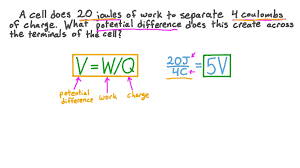 A cell does 20 joules of work to separate 4 coulombs
of charge. What potential difference does this create across
the terminals of the cell?
V = W/Q
20J
4C
= 5V
potential
difference
work
charge